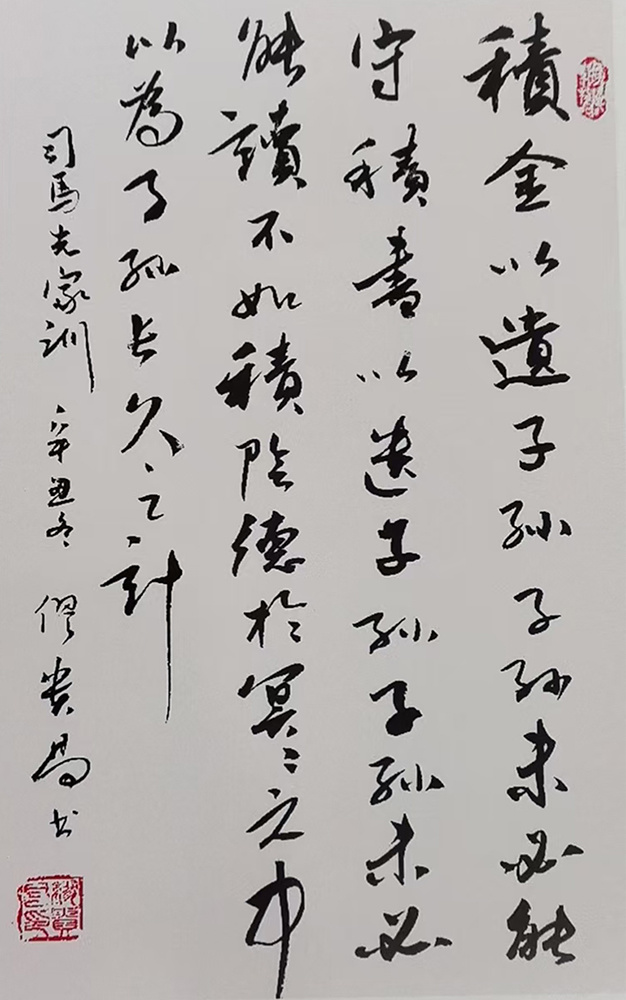 積金以遺子孫子孫未必能
守積書以遺子孫子孫未必
能讀不如積陰德於冥冥之中
以為子孫長久之計
司馬光家訓 辛丑冬 貴昌书